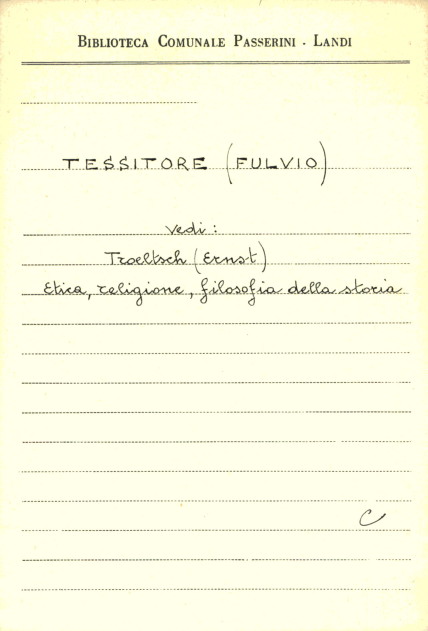 BIBLIOTECA COMUNALE PASSERINI - LANDI
TESSITORE (FULVIO)
vedi:
Troeltsch (Ernst)
Etica, religione, filosofia della storia
C